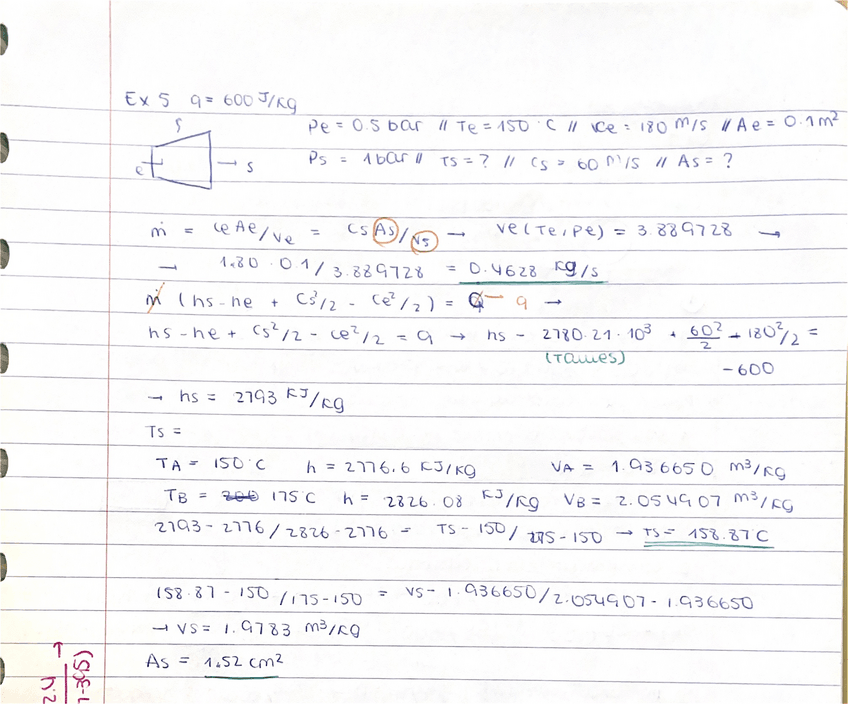 Ex 5 q = 600 J/kg
s
Pe = 0.5 bar // Te = 150 °C // ce = 180 m/s // Ae = 0.1 m²
e → s
Ps = 1 bar // Ts = ? // Cs = 60 m/s // As = ?
ṁ = ceAe/ve = CsAs/vs → ve(Te, Pe) = 3.889728 →
→ 180 · 0.1 / 3.889728 = 0.4628 kg/s
ṁ (hs-he + Cs²/2 - Ce²/2) = Q → q →
hs-he + Cs²/2 - ce²/2 = q → hs - 2780.21 · 10³ + 60²/2 - 180²/2 =
(Tables)
-600
→ hs = 2793 KJ/kg
Ts =
TA = 150°C h = 2776.6 KJ/kg VA = 1.936650 m³/kg
TB = 200 175°C h = 2826.08 KJ/kg VB = 2.054907 m³/kg
2793-2776/2826-2776 = Ts-150/175-150 → Ts = 158.87°C
158.87-150/175-150 = vs-1.936650/2.054907-1.936650
→ vs = 1.9783 m³/kg
As = 1.52 cm²
2.4 →
1-395)